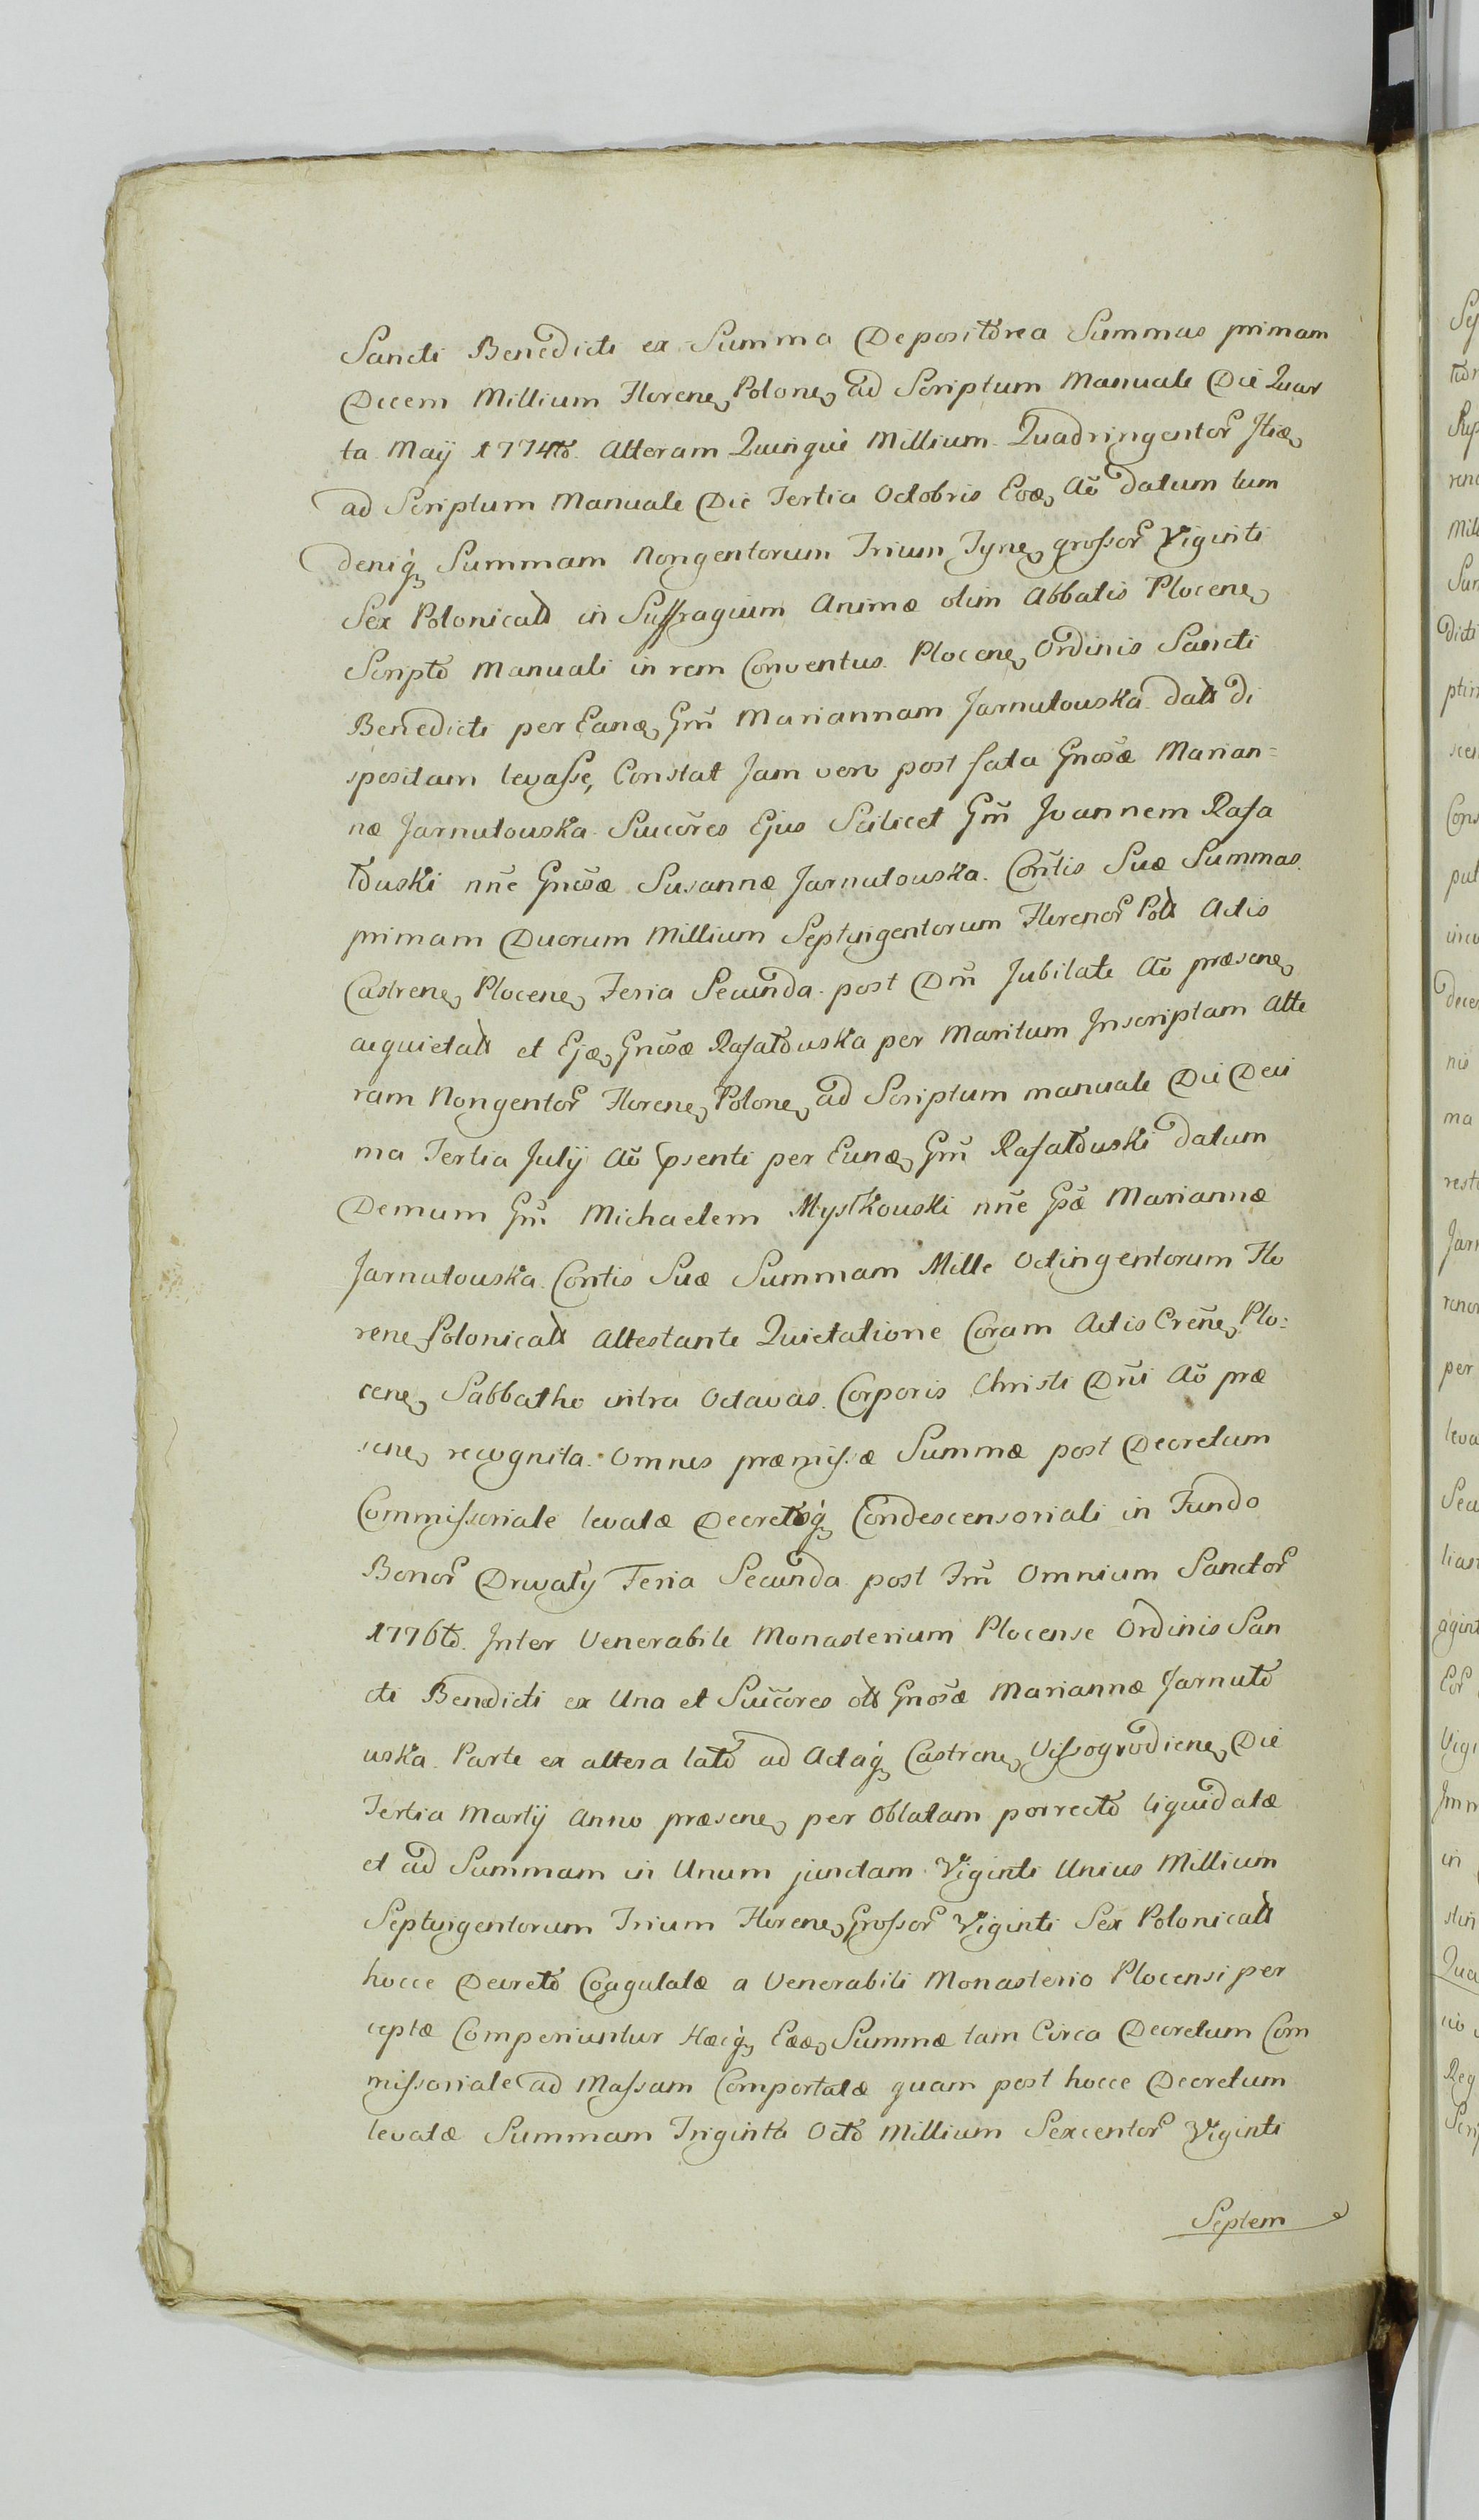 Sancti Benedicti ex Summa Depositorea Summas primam
Decem Millium Florene, Polone, ad Scriptum Manuale Die Quar
ta Maÿ 1774to. Alteram Quinque Millium Quadringentor
ad Scriptum Manuale Die Tertia Octobris Eoae, Ao datum tum
deniq, Summam Nongentorum Trium Tyne, grossor Viginti
Sex Polonicall in Suffragium Animæ olim Abbatis Plocene,
Scripto Manuali in rem Conventus Plocene, Ordinis Sancti
Benedicti per Eanæ, Gm̃ Mariannam Jarnutouska datt di
spositam levasse, Constat Jam vero post fata Gnosæ Marian=
næ Jarnutouska Succõres Ejus Scilicet Gm̃ Joannem Rafa
touski nñe Gnosæ Susannæ Jarnutouska Cõntis Suæ Summas
primam Duorum Millium Septingentorum Florenor Poll Actis
Castrene, Plocene, Feria Secunda post Dm̃ Jubilate Ao præsene,
acquietall et Ejæ, Gnosæ Rafatouska per Maritum Inscriptam Alte
ram Nongentor Florene, Polone, ad Scriptum manuale Die Deci
ma Tertia Julÿ Ao psenti per Eunæ, Gm̃ Rafatouski datum
Demum Gm̃ Michaelem Mystkouski nñe Gsæ Mariannæ
Jarnutouska Contis Suæ Summam Mille Octingentorum Flo
rene, Polonicall Attestante Quietatione Coram Actis Creñe, Plo=
cene, Sabbatho intra Octavas Corporis Christi Dñi Ao præ
sene, recognita. Omnes præmissæ Summæ post Decretum
Commissoriale levatæ Decretoq, Condescensoriali in Fundo
Bonor Drwatÿ Feria Secunda post Fm̃ Omnium Sanctor
1776to. Inter Venerabile Monasterium Plocense Ordinis San
cti Benedicti ex Una et Succõres oll Gnosæ Mariannæ Jarnuto
uska Parte ex altera lato ad Actaq, Castrene, Vissogrodiene, Die
Tertia Martÿ Anno præsene, per Oblatam porrecto liquidatæ
et ad Summam in Unum junctam Viginti Unius Millium
Septingentorum Trium Florene, Grossor Viginti Sex Polonicall
hocce Decreto Coagulatæ a Venerabili Monasterio Plocensi per
ceptæ Comperiuntur Hæcq, Eæ, Summæ tam Circa Decretum Com
missoriale ad Massam Comportatæ quam post hocce Decretum
levatæ Summam Triginta Octo Millium Sexcentor Viginti
Septem